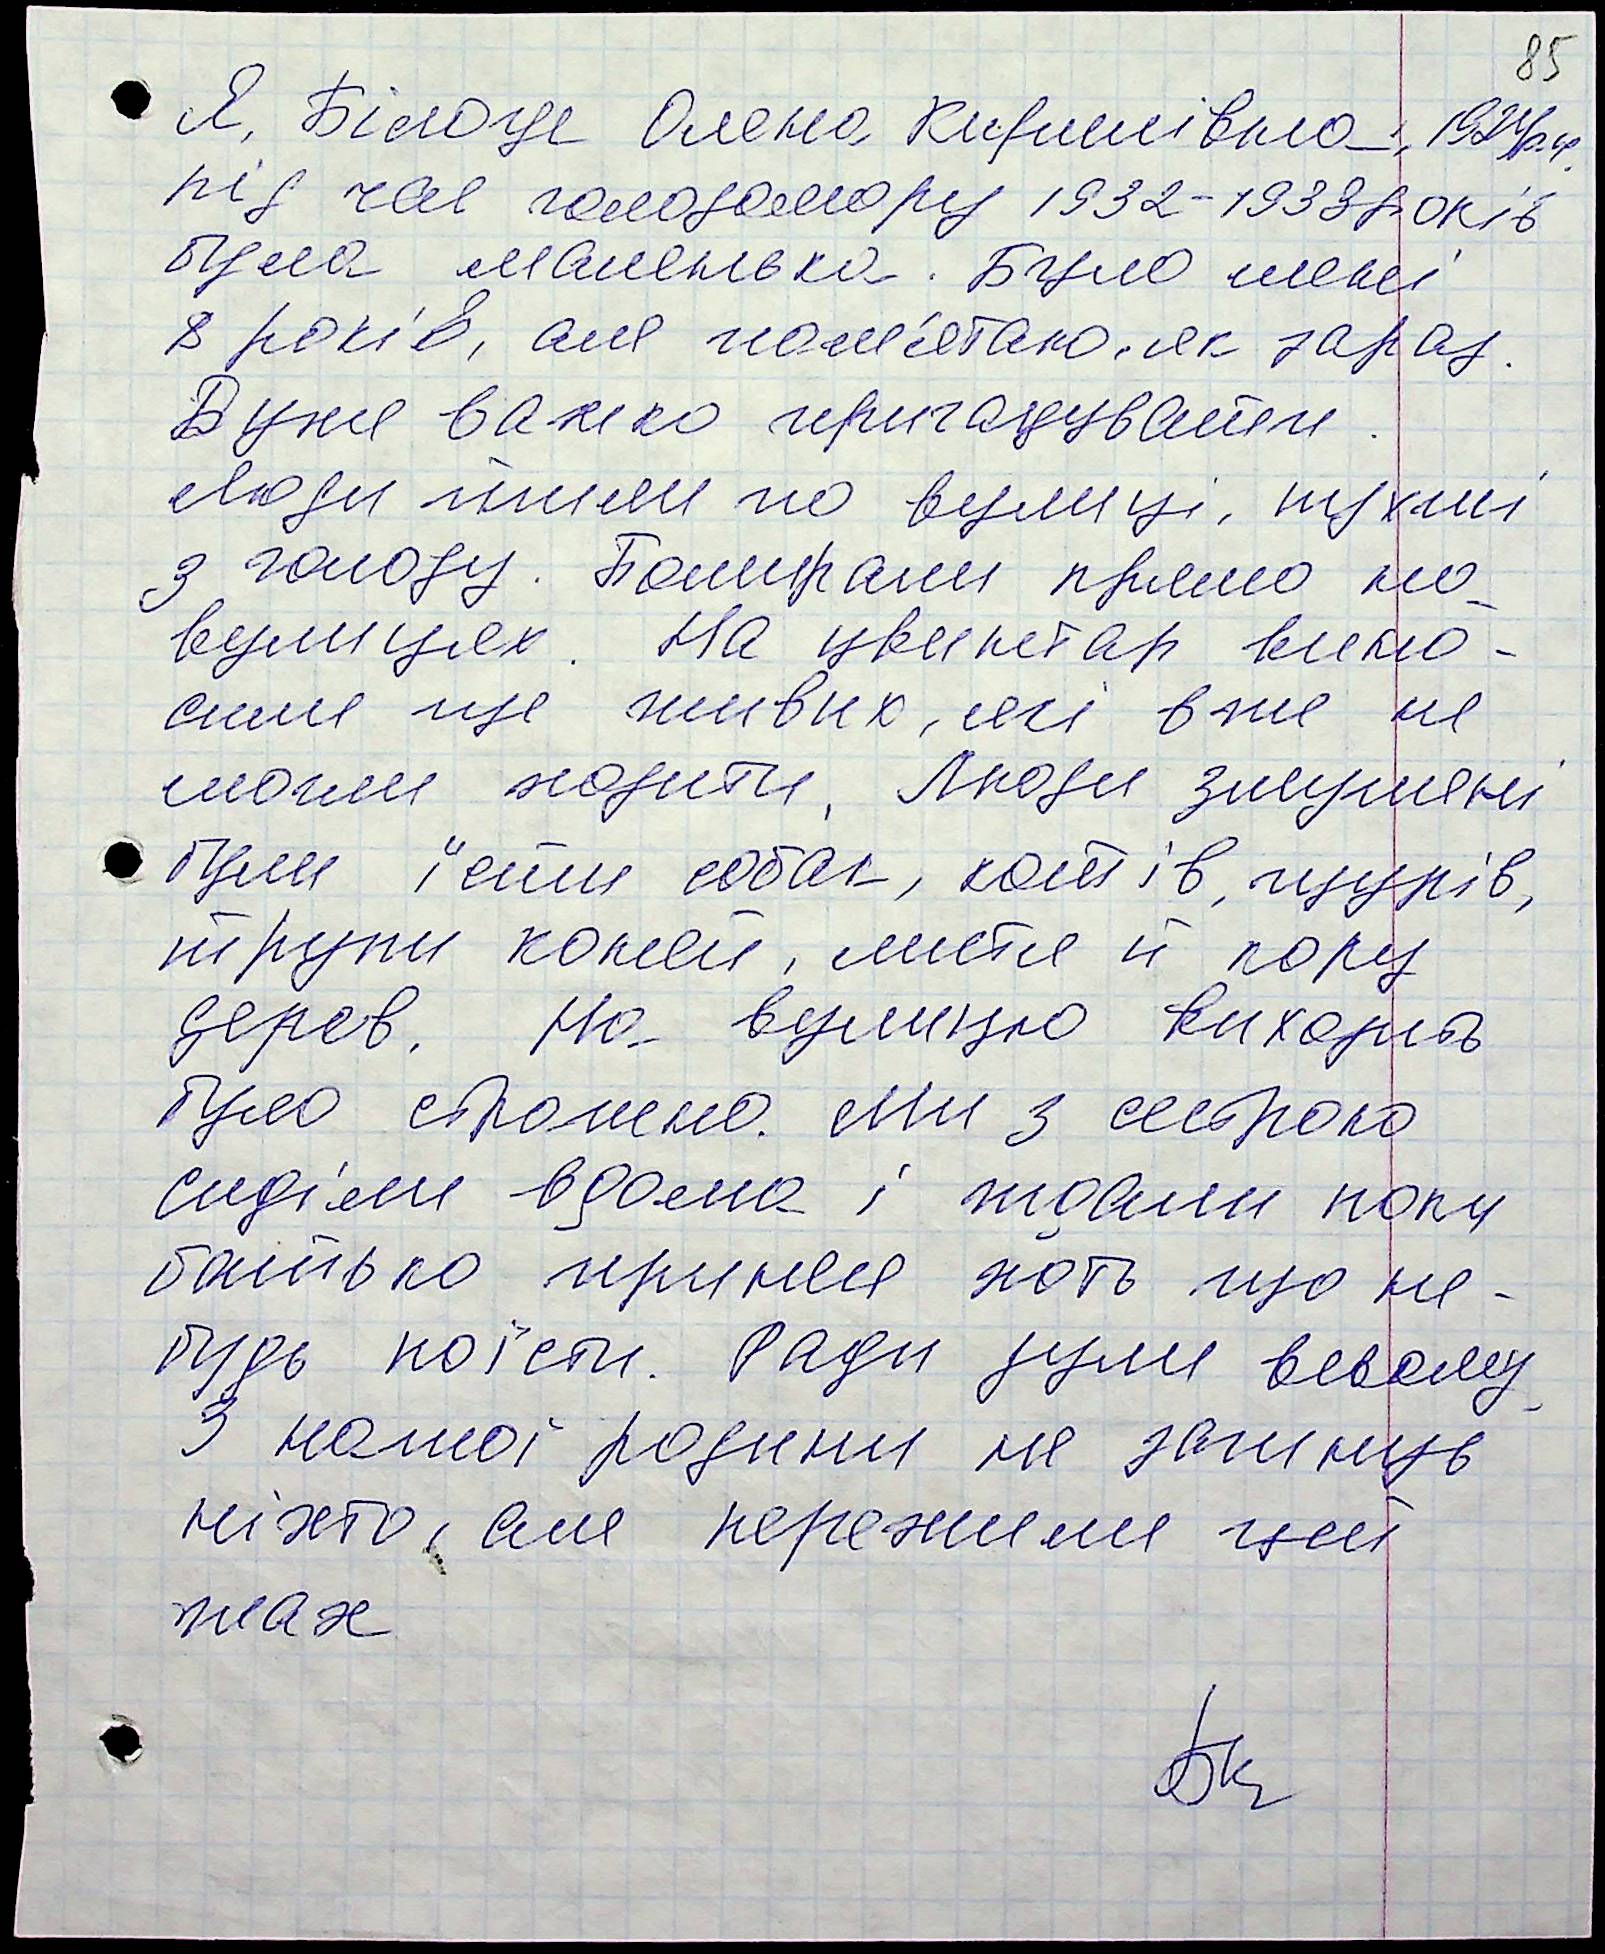 85
Я, Білоус Олена Кирилівна, 1924р.н.
під час голодомору 1932-1933 років
була маленька. Було мені
8 років, але пам'ятаю як зараз.
Дуже важко пригадувати.
Люди йшли по вулиці, пухлі
з голоду. Помирали прямо на
вулицях. На цвинтар вино-
сили ще живих, які вже не
могли ходити. Люди змушені
були їсти собак, котів, щурів,
трупи коней, листя й кору
дерев. На вулицю виходить
було страшно. Ми з сестрою
сиділи вдома і ждали поки
батько принесе хоть що не-
будь поїсти. Ради були всьому.
З нашої родини не загинув
ніхто, але пережили цей
жах